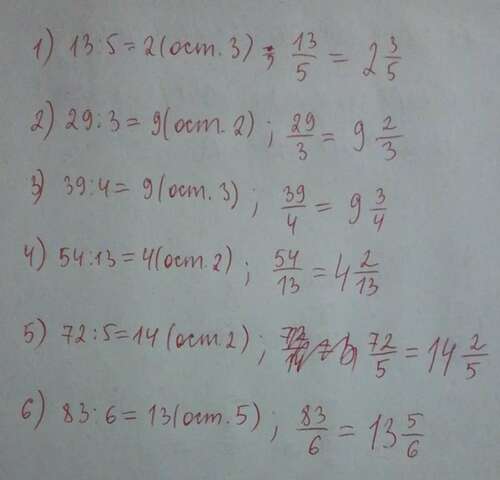 1) 13:5=2(ост.3); 13/5 = 2 3/5
2) 29:3=9(ост.2); 29/3 = 9 2/3
3) 39:4=9(ост.3); 39/4 = 9 3/4
4) 54:13=4(ост.2); 54/13 = 4 2/13
5) 72:5=14(ост.2); 72/5 = 14 2/5
6) 83:6=13(ост.5); 83/6 = 13 5/6